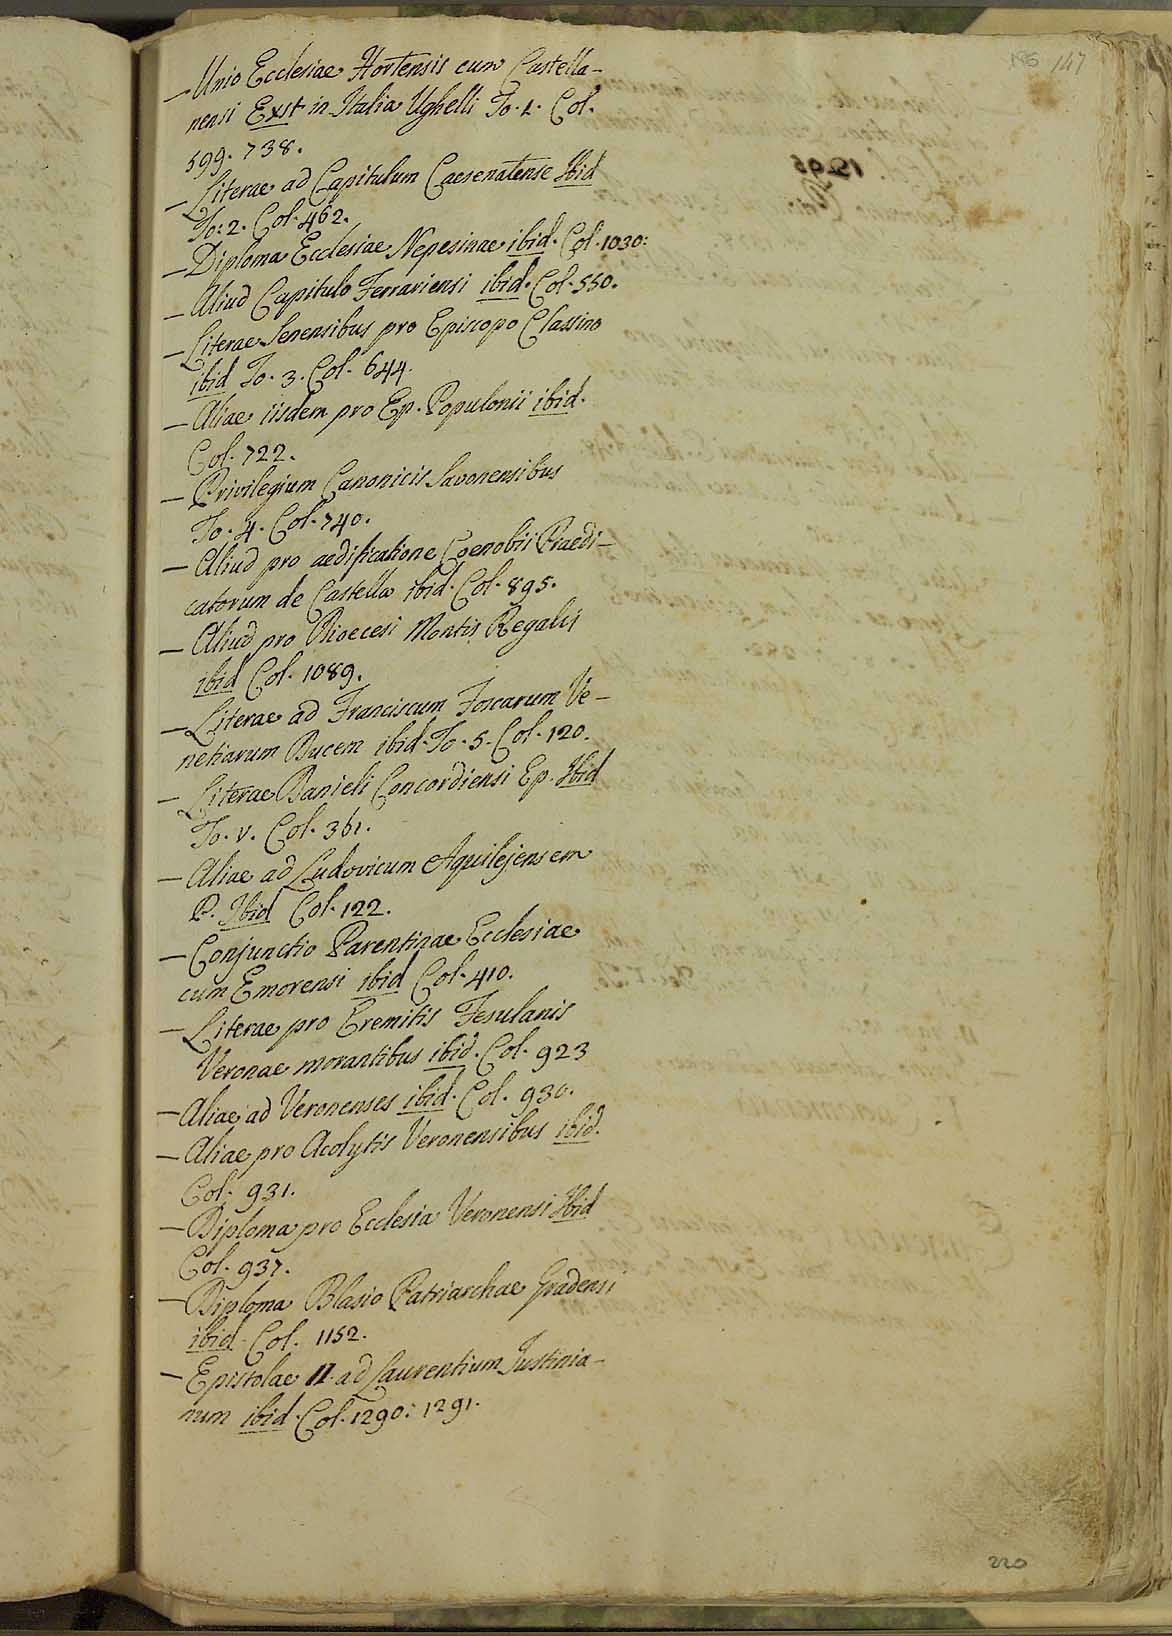 186 147
— Unio Ecclesiae Hortensis cum Castella-
nensi Exst in Italia Ughelli To. 1. Col.
599. 738.
— Literae ad Capitulum Caesenatense Ibid
To: 2. Col. 462.
— Diploma Ecclesiae Nepesinae ibid. Col. 1030:
— Aliud Capitulo Ferrariensi ibid. Col. 550.
— Literae Senensibus pro Episcopo Classino
ibid To. 3. Col. 644.
— Aliae iisdem pro Ep. Populonii ibid.
Col. 722.
— Privilegium Canonicis Savonensibus
To. 4. Col. 740.
— Aliud pro aedificatione Coenobii Praedi-
catorum de Castella ibid. Col. 895.
— Aliud pro Dioecesi Montis Regalis
ibid Col. 1089.
— Literae ad Franciscum Foscarum Ve-
netiarum Ducem ibid. To. 5. Col. 120.
— Literae Danieli Concordiensi Ep. Ibid
To. V. Col. 361.
— Aliae ad Ludovicum Aquilejensem
P. Ibid Col. 122.
— Conjunctio Parentinae Ecclesiae
cum Emorensi ibid Col. 410.
— Literae pro Eremitis Fesulanis
Veronae morantibus ibid. Col. 923
— Aliae ad Veronenses ibid. Col. 930.
— Aliae pro Acolytis Veronensibus ibid.
Col. 931.
— Diploma pro Ecclesia Veronensi Ibid
Col. 937.
— Diploma Blasio Patriarchae Gradensi
ibid. Col. 1152.
— Epistolae II. ad Laurentium Justinia-
num ibid. Col. 1290: 1291.
220